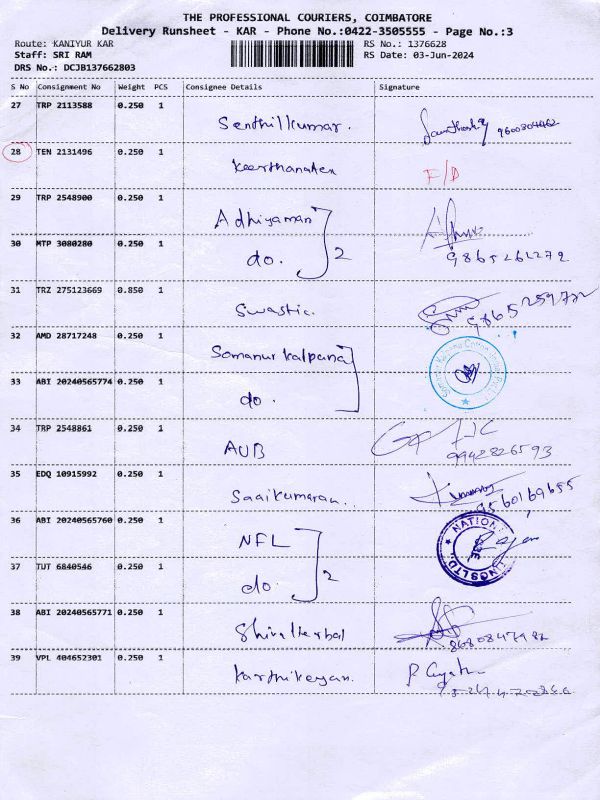 THE PROFESSIONAL COURIERS, COIMBATORE
Delivery Runsheet - KAR - Phone No.:0422-3505555 - Page No.:3
Route: KANIYUR KAR RS No.: 1376628
Staff: SRI RAM RS Date: 03-Jun-2024
DRS No.: DCJB137662803
S No Consignment No Weight PCS Consignee Details Signature
27 TRP 2113588 0.250 1 Senthilkumar. 9600304462
28 TEN 2131496 0.250 1 Keerthanatex F/D
29 TRP 2548900 0.250 1 Adhiyaman
30 MTP 3080280 0.250 1 do. 2 9865262272
31 TRZ 275123669 0.850 1 Swastic. 9865259772
32 AMD 28717248 0.250 1 Somanur Kalpana
33 ABI 20240565774 0.250 1 do.
34 TRP 2548861 0.250 1 AUB 9942826593
35 EDQ 10915992 0.250 1 Saaikumaran. 9560169655
36 ABI 20240565760 0.250 1 NFL
37 TUT 6840546 0.250 1 do. 2
38 ABI 20240565771 0.250 1 Shivalterbal 8680847982
39 VPL 404652301 0.250 1 Karthikeyan.